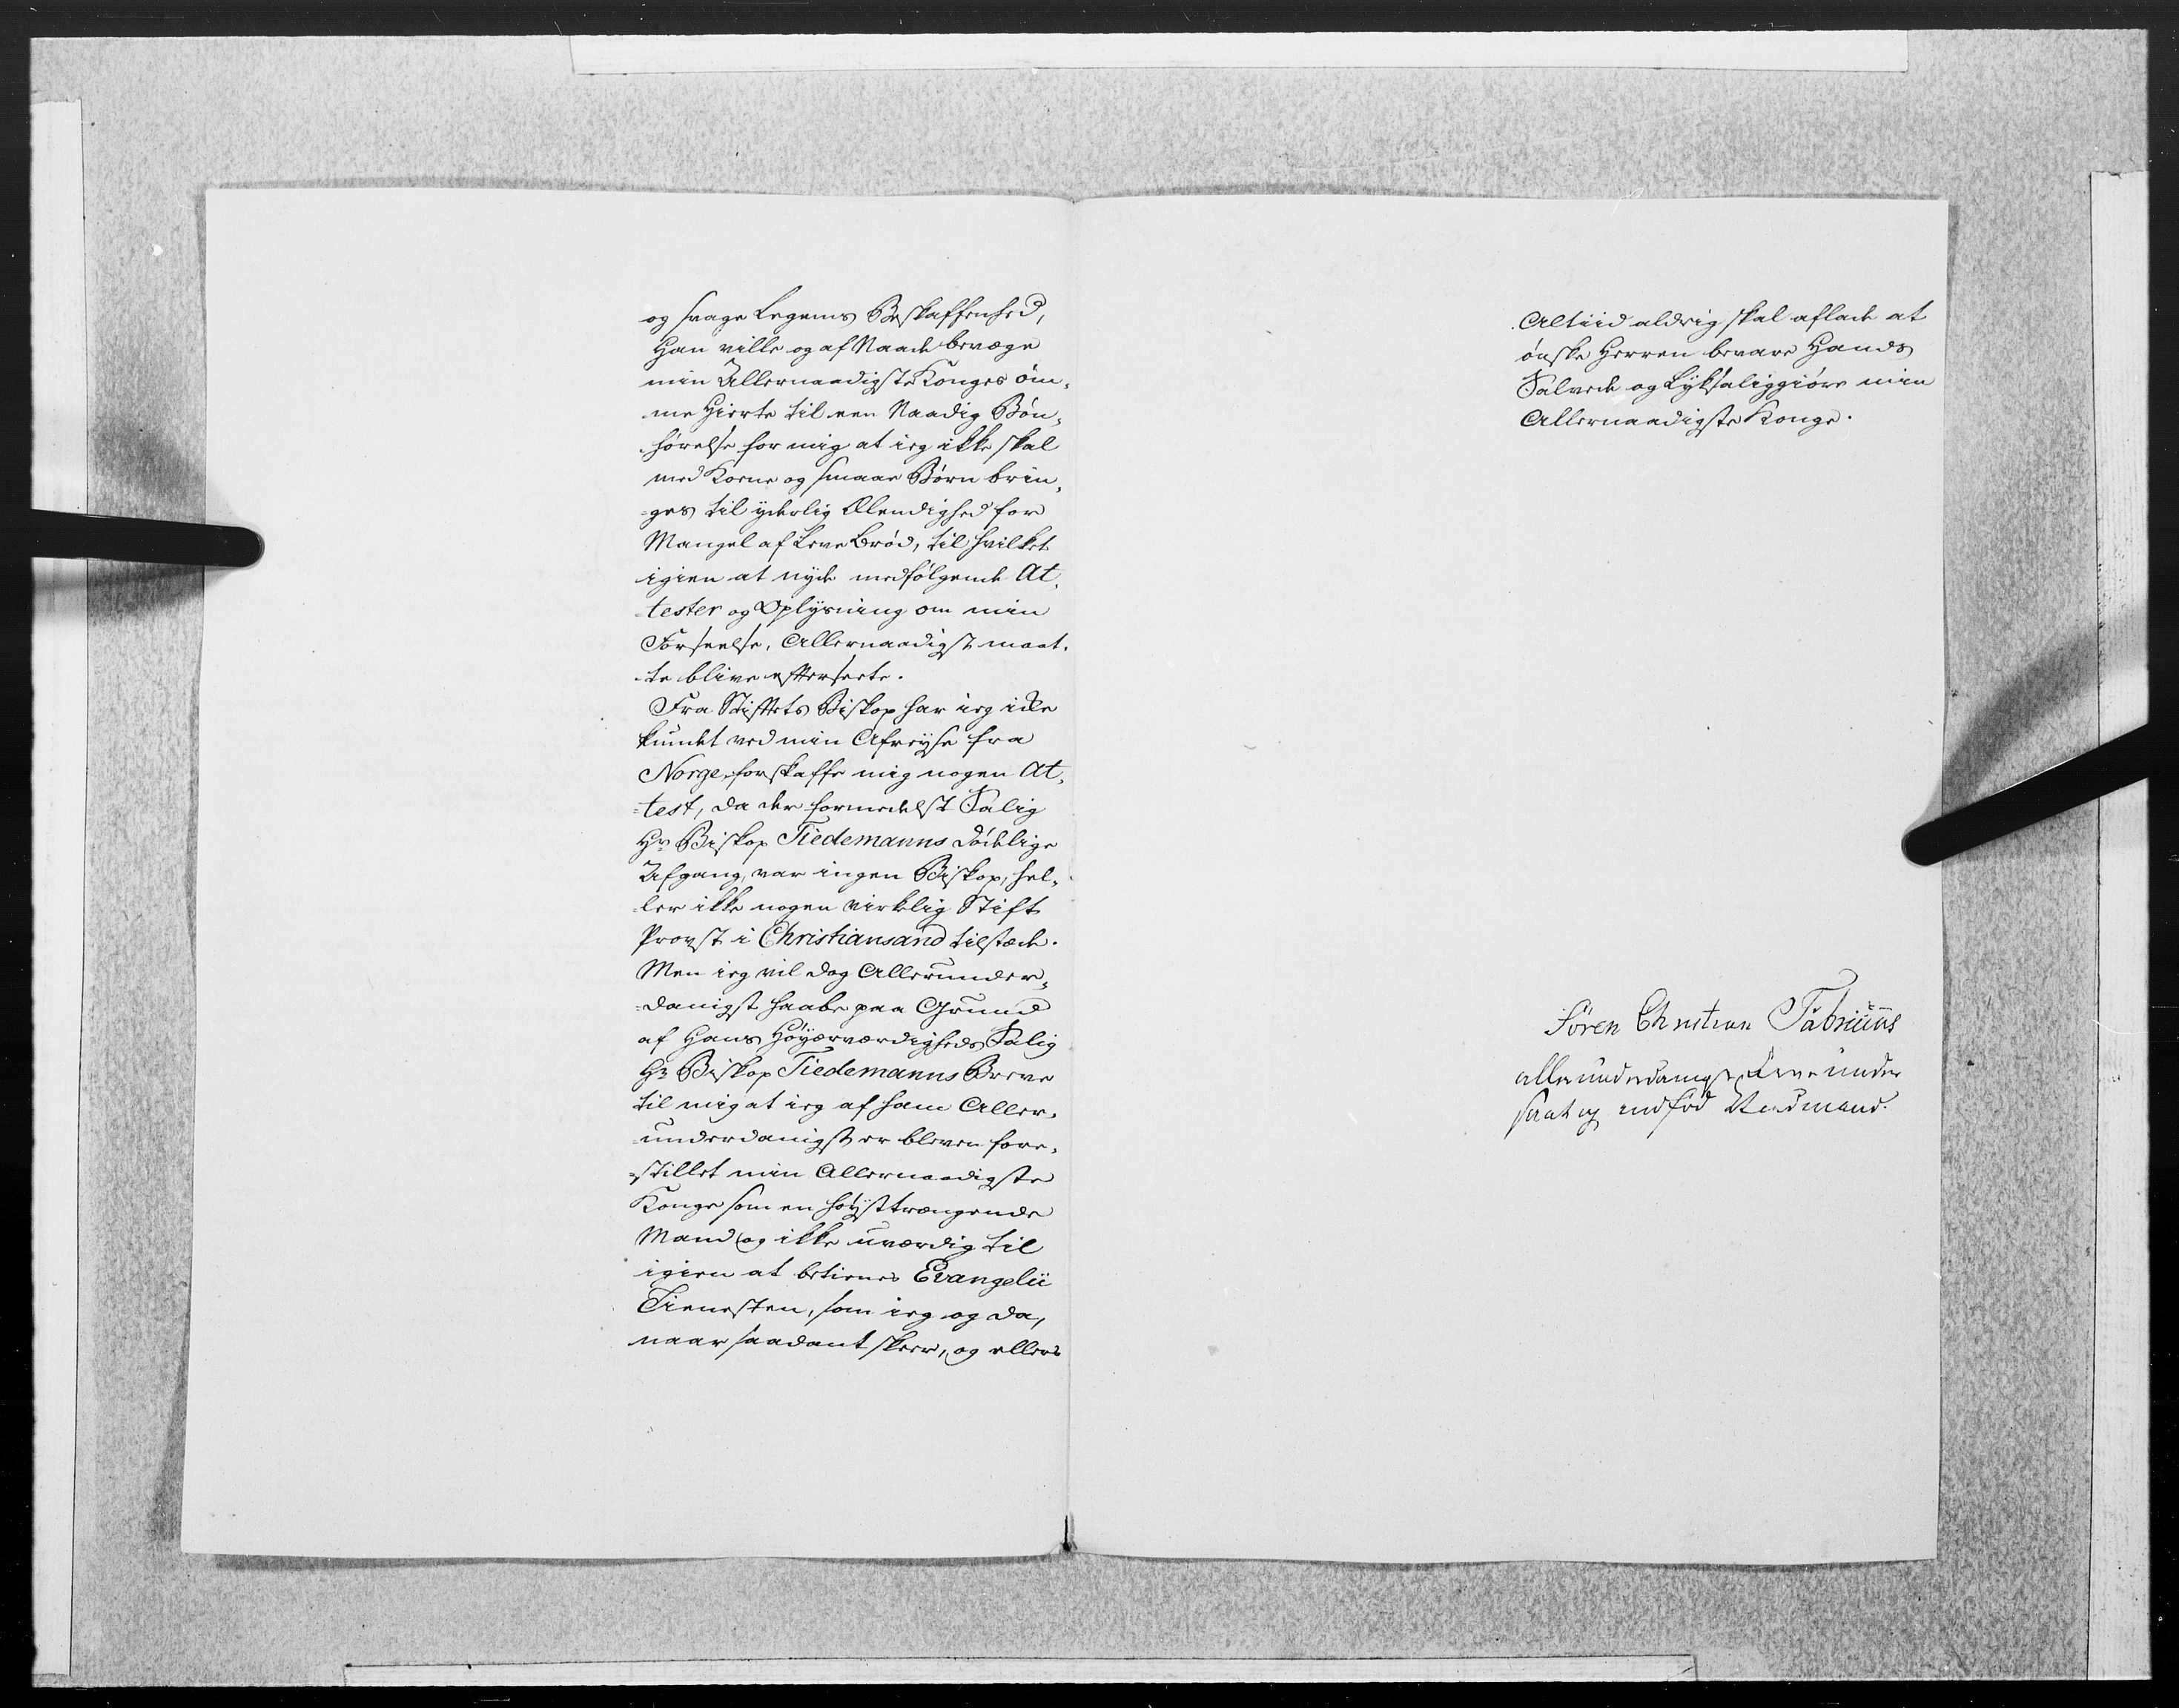 og svage Legems Beskaffenhed,
Han ville og af Naade bevæge
min Allernaadigste Konges öm-
me Hierte til een Naadig Bön-
hörelse for mig at ieg ikke skal
med Kone og smaae Börn brin-
ges til yderlig Elendighed for
Mangel af Leve Bröd, til hvilket
igien at nyde medfölgende At-
tester og Oplysning om min
Forseelse, Allernaadigst maat-
te blive efterseete.
Fra Stiftets Biskop har ieg icke
kundet ved min Afreyse fra
Norge, forskaffe mig nogen At-
test, da der formedelst Salig
Hr Biskop Tiedemanns dödelige
Afgang, var ingen Biskop, hel-
ler ikke nogen virkelig Stift
Provst i Christiansand tilstæde.
Men ieg vil dog Allerunder-
danigst haabe paa Grund
af Hans Höyærværdigheds Salig
Hr Biskop Tiedemanns Breve
til mig at ieg af ham Aller-
underdanigst er bleven fore-
stillet min Allernaadigste
Konge som en höysttrængende
Mand og ikke uværdig til
igien at betienes Evangelii
Tienesten, som ieg og da,
naar saadant skeer, og ellers
Altiid aldrig skal aflade at
önske Herren bevare Hands
Salvede og Lyksaliggiöre min
Allernaadigste Konge.
Sören Christian Fabriüüs
allerunderdanigst Arve under
saat og indföd Nordmand.